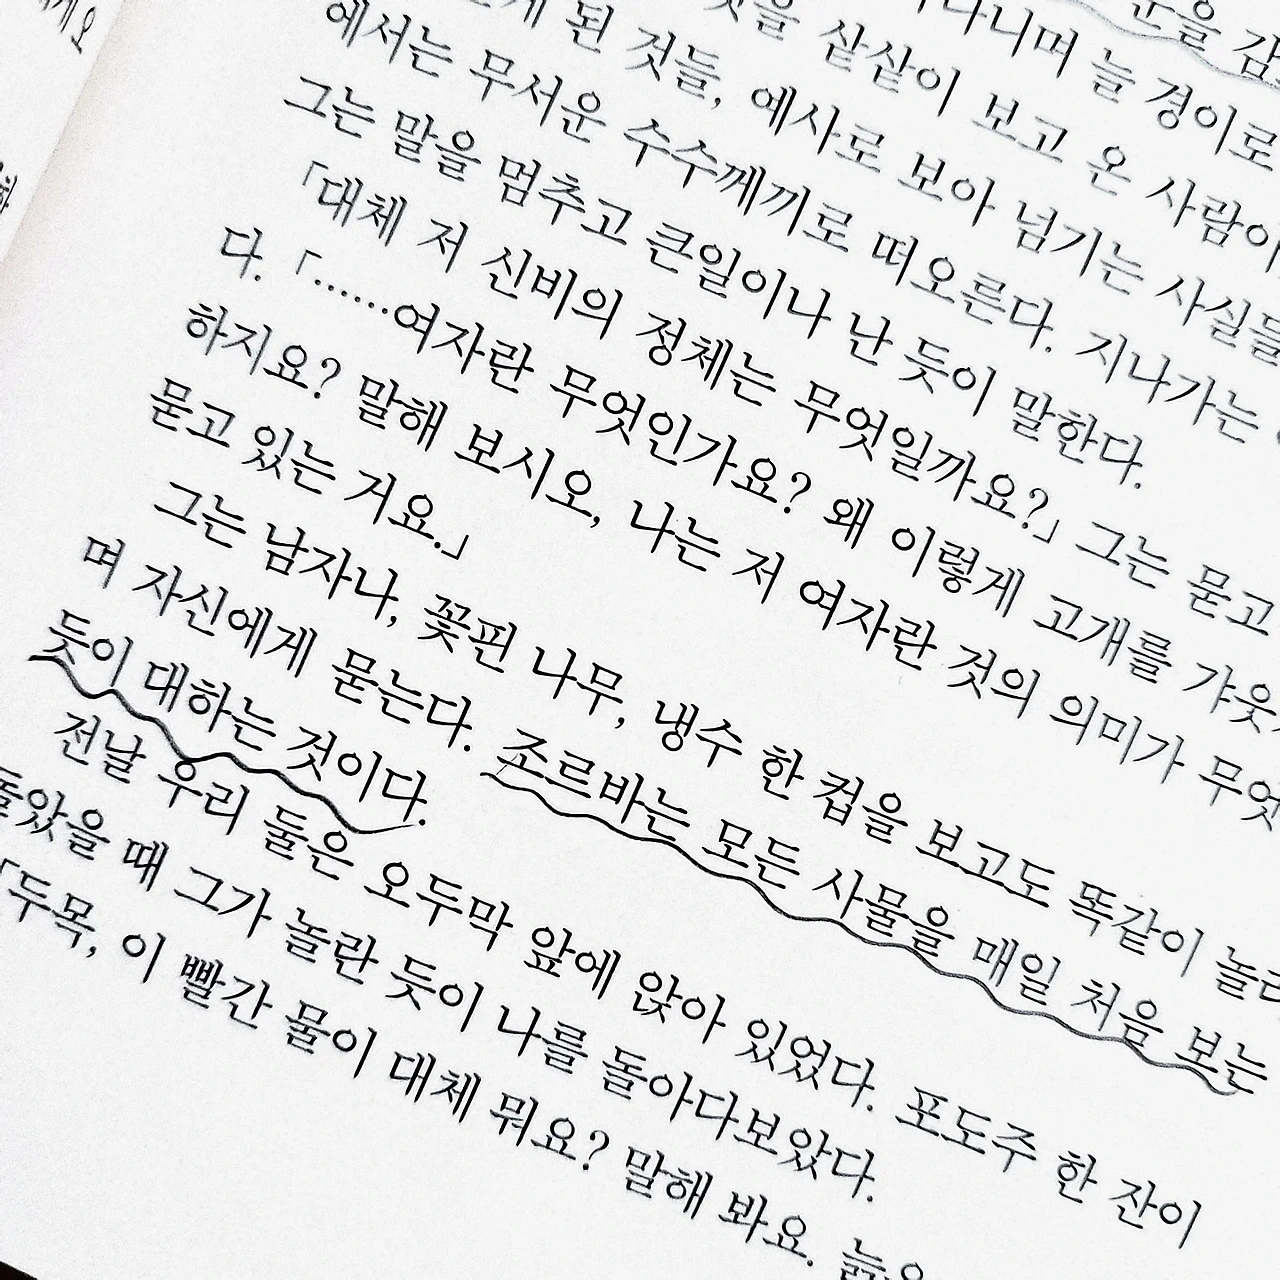 눈을 감
다니며 늘 경이로
것을 샅샅이 보고 온 사람이
게 된 것들, 예사로 보아 넘기는 사실들
에서는 무서운 수수께끼로 떠오른다. 지나가는
그는 말을 멈추고 큰일이나 난 듯이 말한다.
「대체 저 신비의 정체는 무엇일까요?」 그는 묻고
다. 「……여자란 무엇인가요? 왜 이렇게 고개를 갸웃
하지요? 말해 보시오, 나는 저 여자란 것의 의미가 무엇
묻고 있는 거요.」
그는 남자나, 꽃핀 나무, 냉수 한 컵을 보고도 똑같이 놀라
며 자신에게 묻는다. 조르바는 모든 사물을 매일 처음 보는
듯이 대하는 것이다.
전날 우리 둘은 오두막 앞에 앉아 있었다. 포도주 한 잔이
돌았을 때 그가 놀란 듯이 나를 돌아다보았다.
「두목, 이 빨간 물이 대체 뭐요? 말해 봐요. 늙은